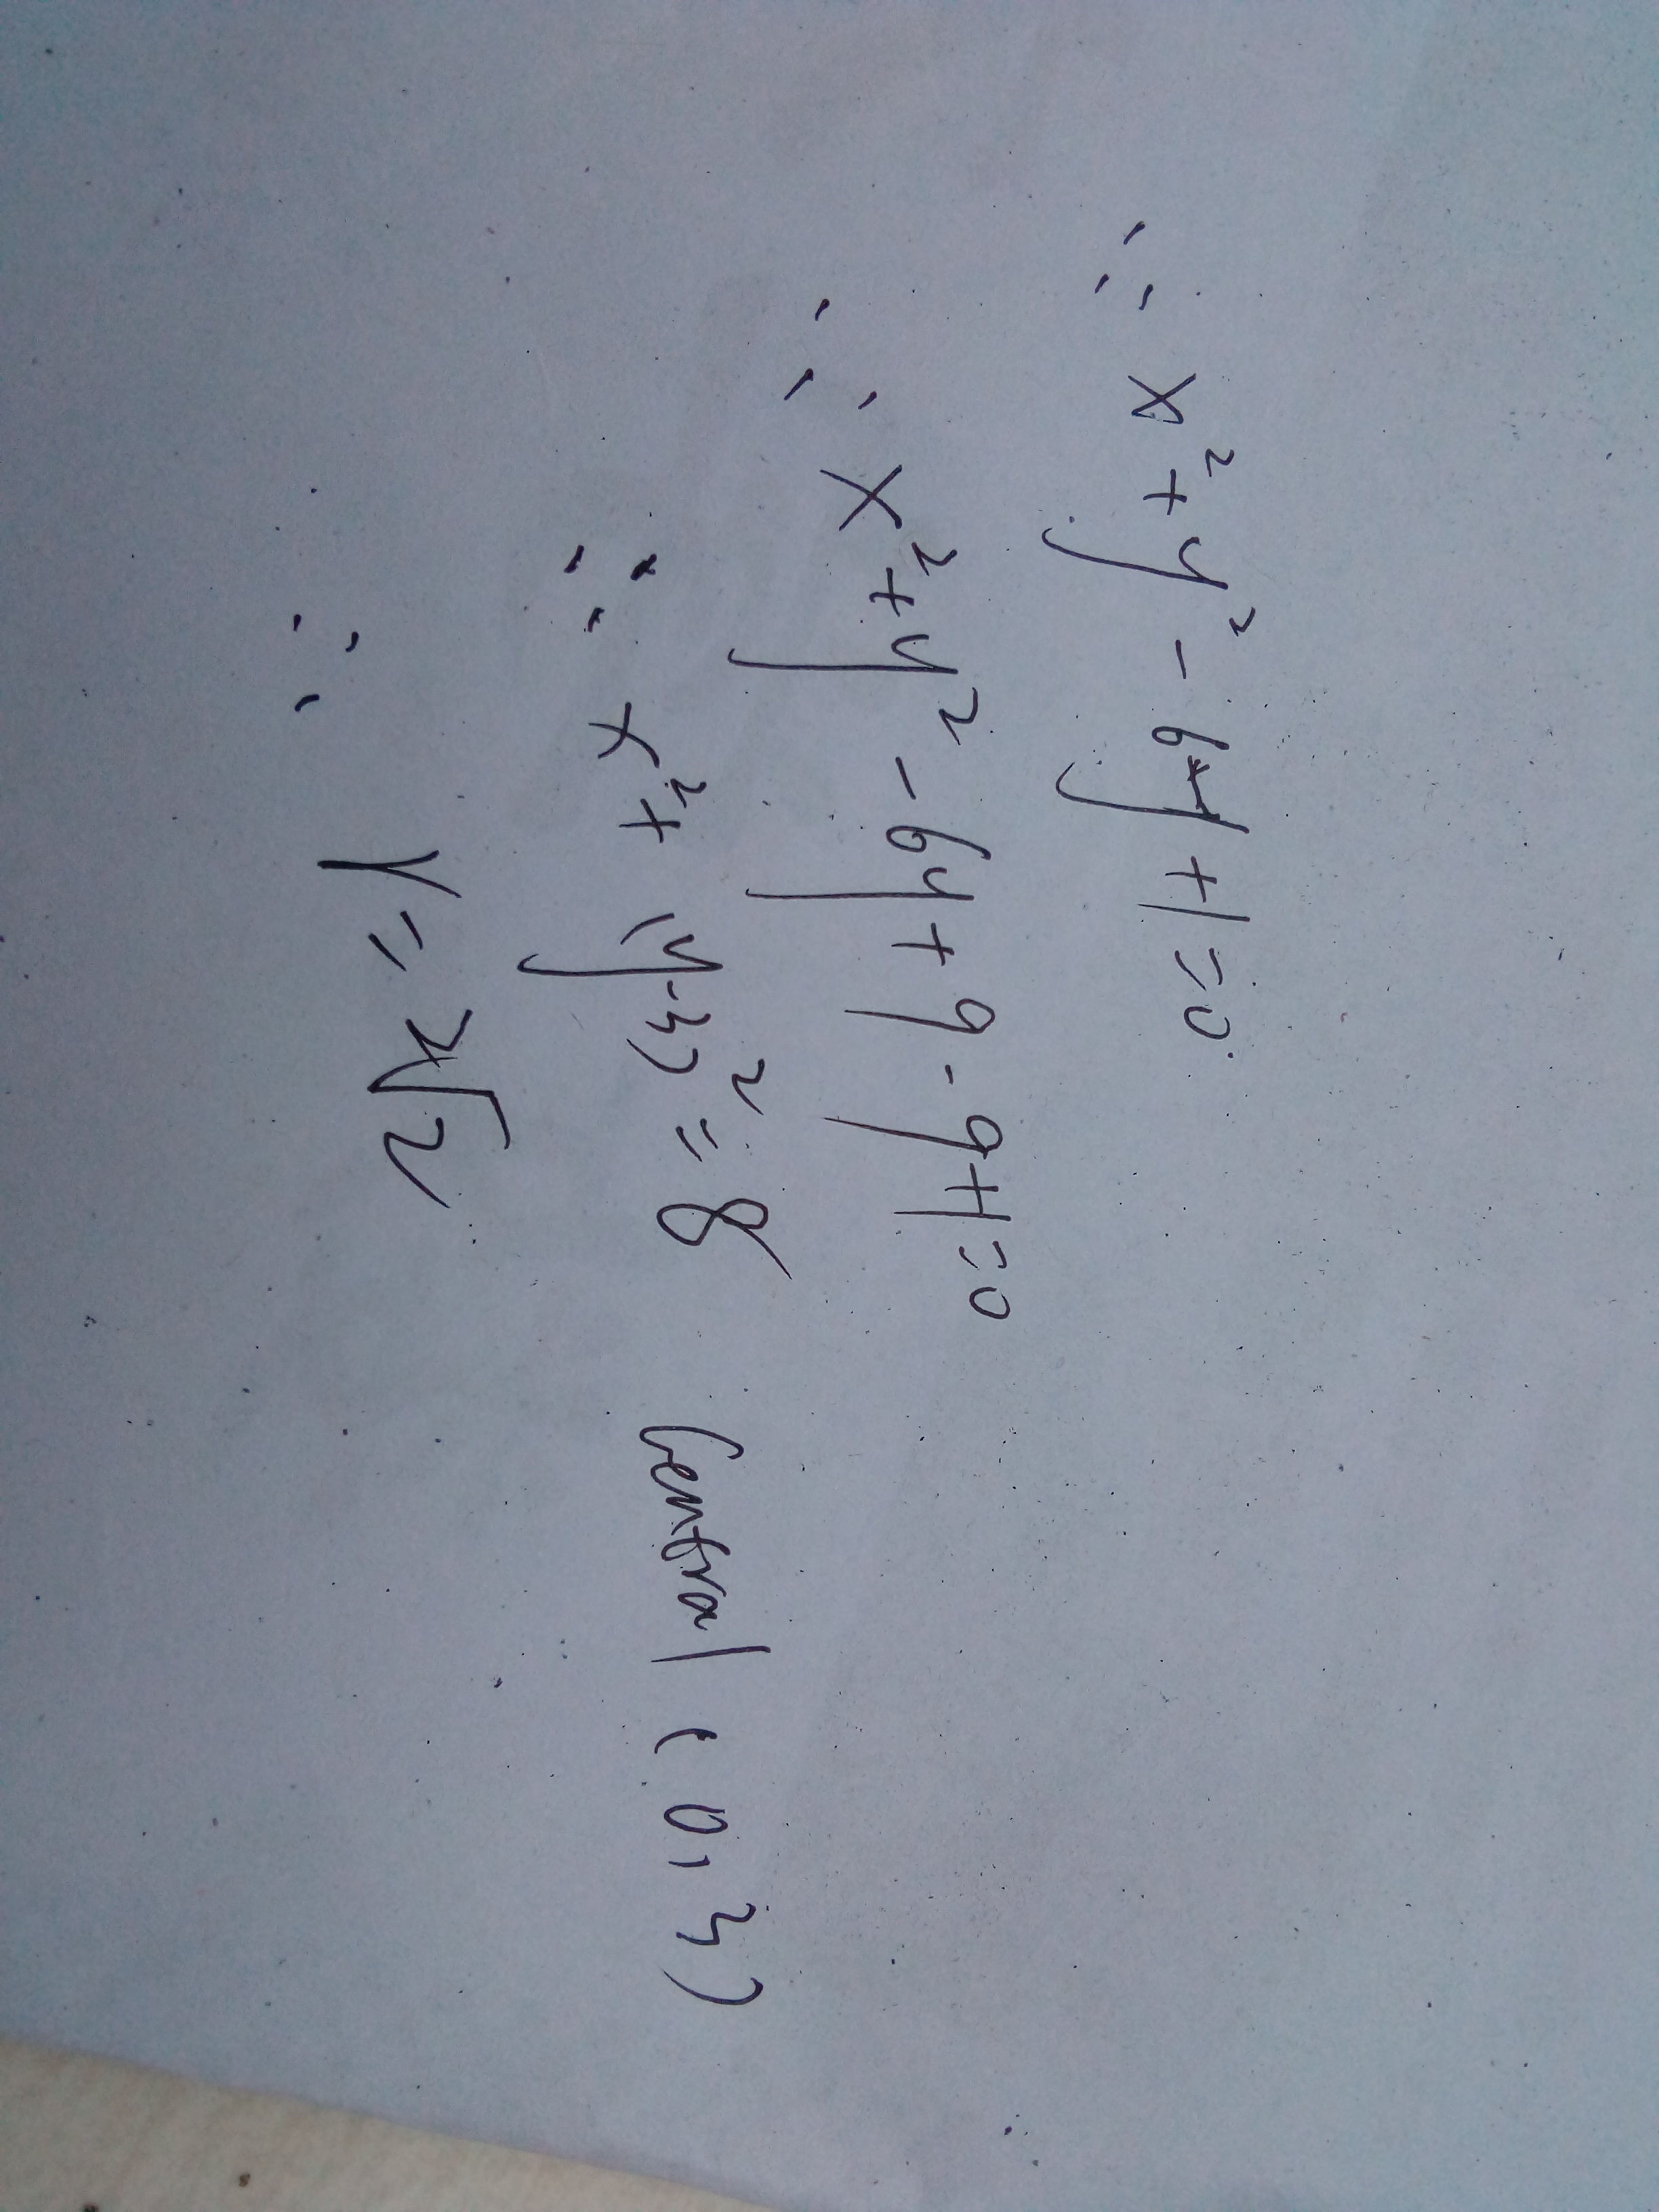 ∵ x²+y²-6y+1=0
∴ x²+y²-6y+9-9+1=0
∵ x²+(y-3)²=8 Central (0,3)
∴ r=2√2